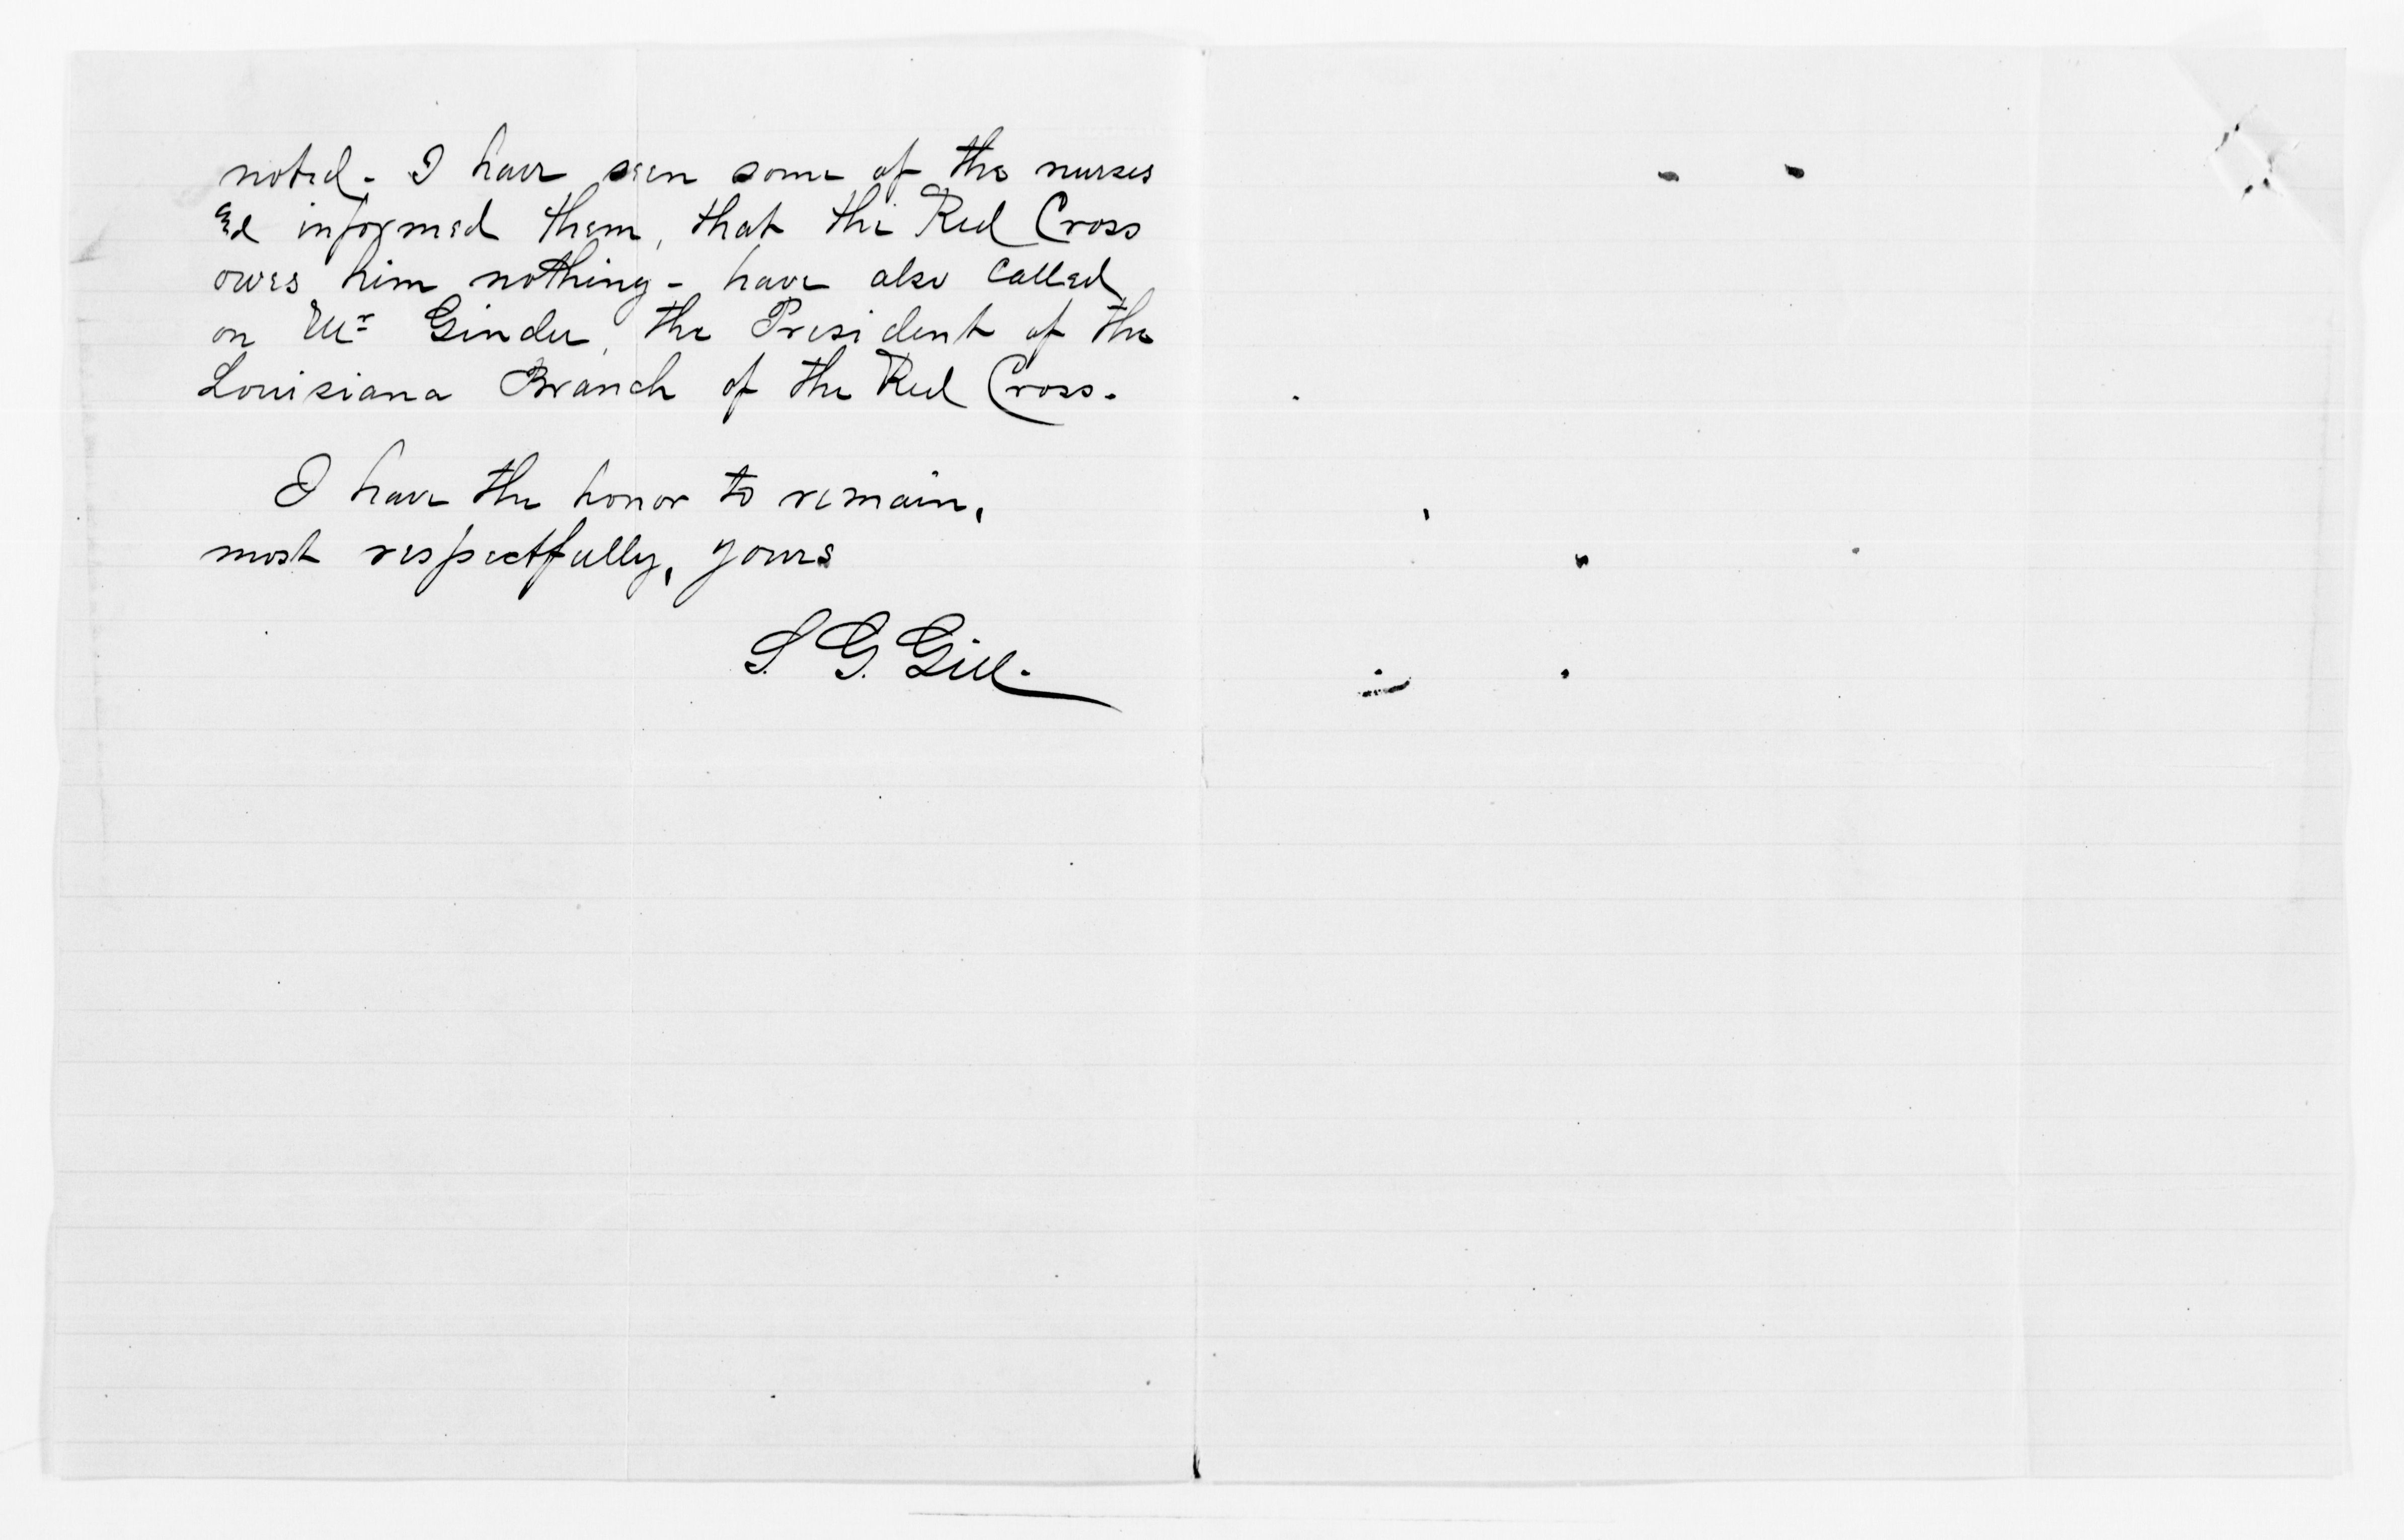 noted. I have seen some of the nurses
and informed them, that the Red Cross
owes him nothing - have also called
on Mr Ginder, the President of the
Louisiana Branch of the Red Cross.
I have the honor to remain,
most respectfully, yours
S. G. Gill.